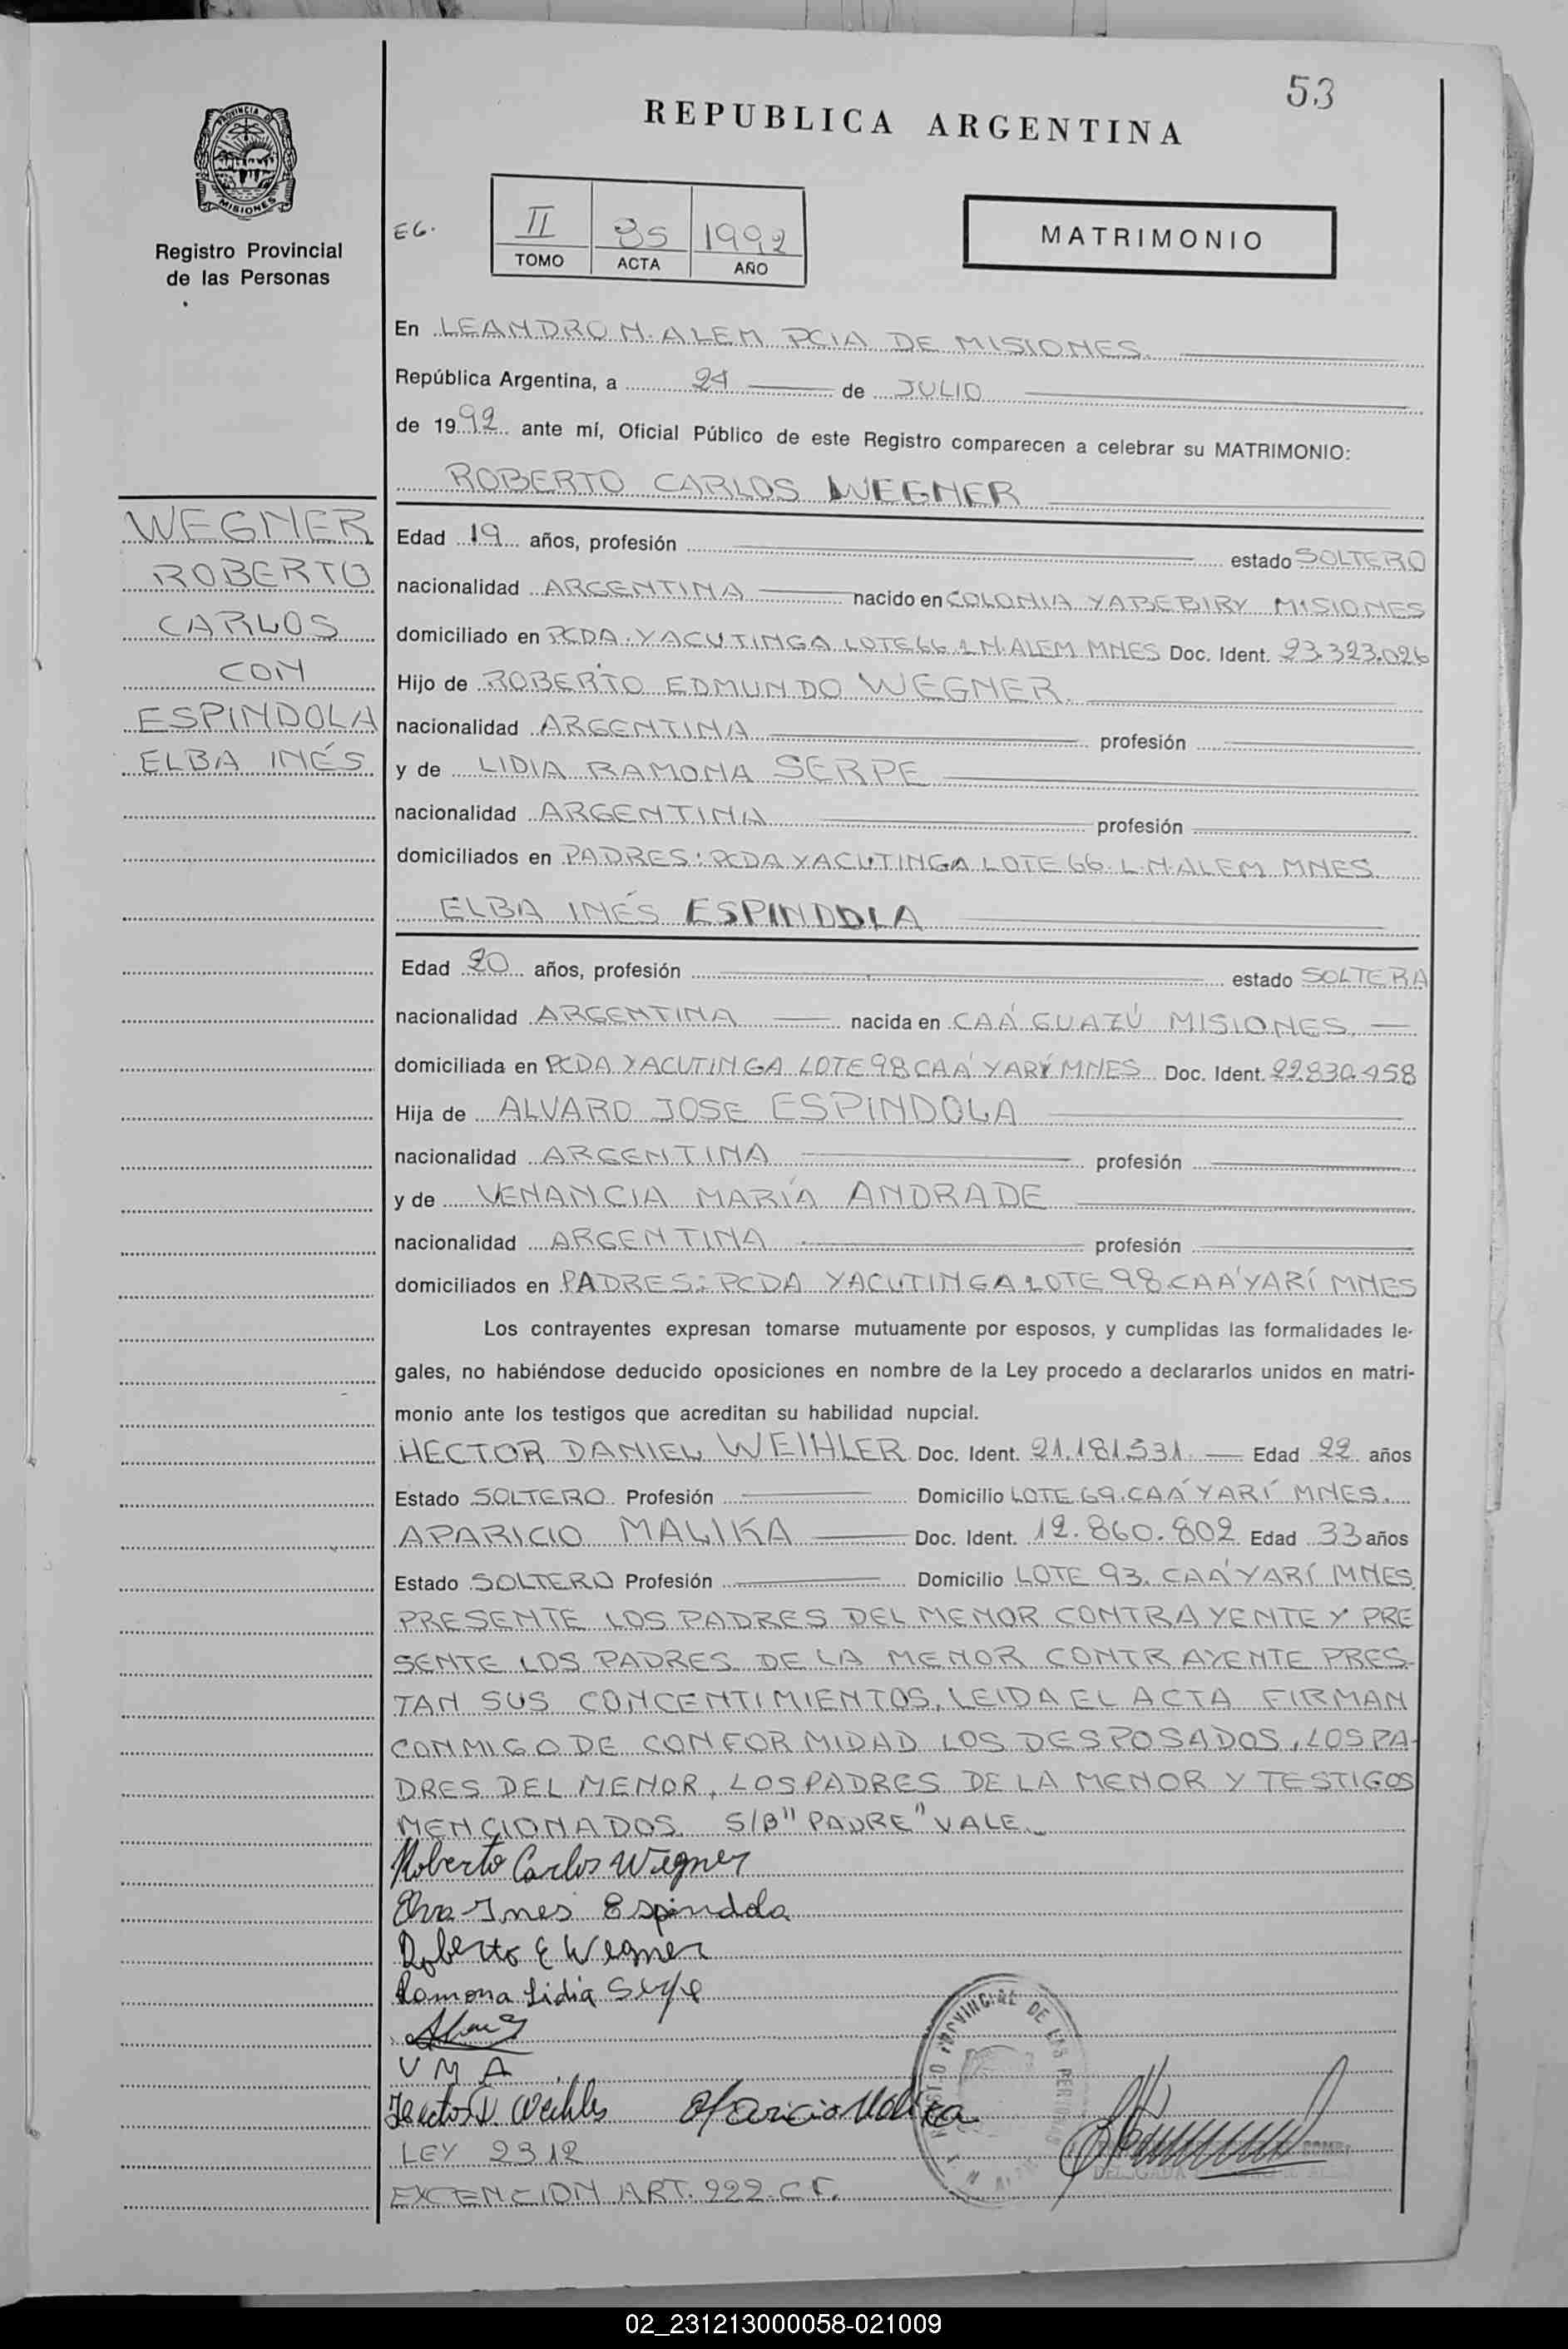 53
REPUBLICA ARGENTINA
PROVINCIA DE
MISIONES
Registro Provincial
de las Personas
EG.
II 85 1992
TOMO ACTA AÑO
MATRIMONIO
En LEANDRO N. ALEM PCIA DE MISIONES.
República Argentina, a 24 de JULIO
de 1992 ante mí, Oficial Público de este Registro comparecen a celebrar su MATRIMONIO:
ROBERTO CARLOS WEGNER
WEGNER
ROBERTO
CARLOS
CON
ESPINDOLA
ELBA INÉS
Edad 19 años, profesión estado SOLTERO
nacionalidad ARGENTINA nacido en COLONIA YABEBIRY MISIONES
domiciliado en PCDA. YACUTINGA LOTE 66 L.N. ALEM MNES Doc. Ident. 23.323.026
Hijo de ROBERTO EDMUNDO WEGNER.
nacionalidad ARGENTINA profesión
y de LIDIA RAMONA SERPE
nacionalidad ARGENTINA profesión
domiciliados en PADRES: PCDA YACUTINGA LOTE 66 L.N. ALEM MNES
ELBA INÉS ESPINDOLA
Edad 20 años, profesión estado SOLTERA
nacionalidad ARGENTINA nacida en CAÁ GUAZÚ MISIONES.
domiciliada en PCDA YACUTINGA LOTE 98 CAÁ YARÍ MNES Doc. Ident. 22.830.458
Hija de ALVARO JOSE ESPINDOLA
nacionalidad ARGENTINA profesión
y de VENANCIA MARÍA ANDRADE
nacionalidad ARGENTINA profesión
domiciliados en PADRES: PCDA YACUTINGA LOTE 98 CAÁ YARÍ MNES
Los contrayentes expresan tomarse mutuamente por esposos, y cumplidas las formalidades le-
gales, no habiéndose deducido oposiciones en nombre de la Ley procedo a declararlos unidos en matri-
monio ante los testigos que acreditan su habilidad nupcial.
HECTOR DANIEL WEIHLER Doc. Ident. 21.181.531. Edad 22 años
Estado SOLTERO Profesión Domicilio LOTE 69. CAÁ YARÍ MNES.
APARICIO MALIKA Doc. Ident. 12.860.802 Edad 33 años
Estado SOLTERO Profesión Domicilio LOTE 93. CAÁ YARÍ MNES.
PRESENTE LOS PADRES DEL MENOR CONTRAYENTE Y PRE
SENTE LOS PADRES DE LA MENOR CONTRAYENTE PRES-
TAN SUS CONCENTIMIENTOS, LEIDA EL ACTA FIRMAN
CONMIGO DE CONFORMIDAD LOS DESPOSADOS, LOS PA-
DRES DEL MENOR, LOS PADRES DE LA MENOR Y TESTIGOS
MENCIONADOS. S/B "PADRE" VALE.
Roberto Carlos Wegner
Elva Ines Espindola
Roberto E Wegner
Ramona Lidia Serpe
V M A
Hector D. Weihler Aparicio Malika
PROVINCIAL DE LAS PERSONAS
LEY 2312
EXCENCION ART. 222. C F.
02_231213000058-021009